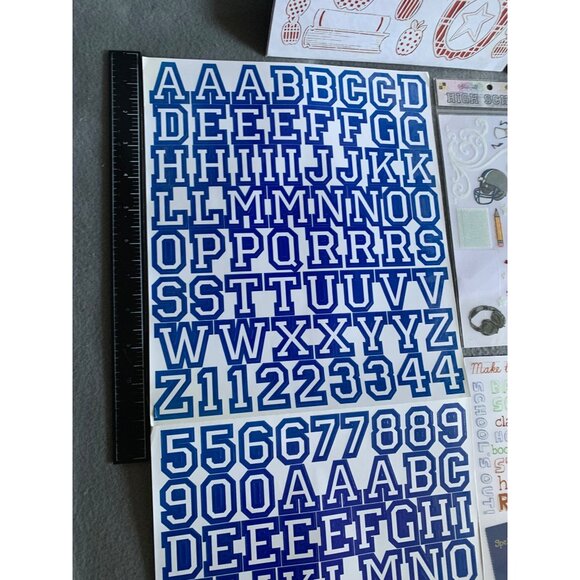 AAABBCCD
DEEEFFGG
HHIIIJJKK
LLMMNNOO
OPPQRRRS
SSTTUUVV
WWXXYYZ
Z11223344
556677889
900AAABC
DEEEFGHI
KLMNO
HIGH SC
Make t
SCHOOL'S OUT!